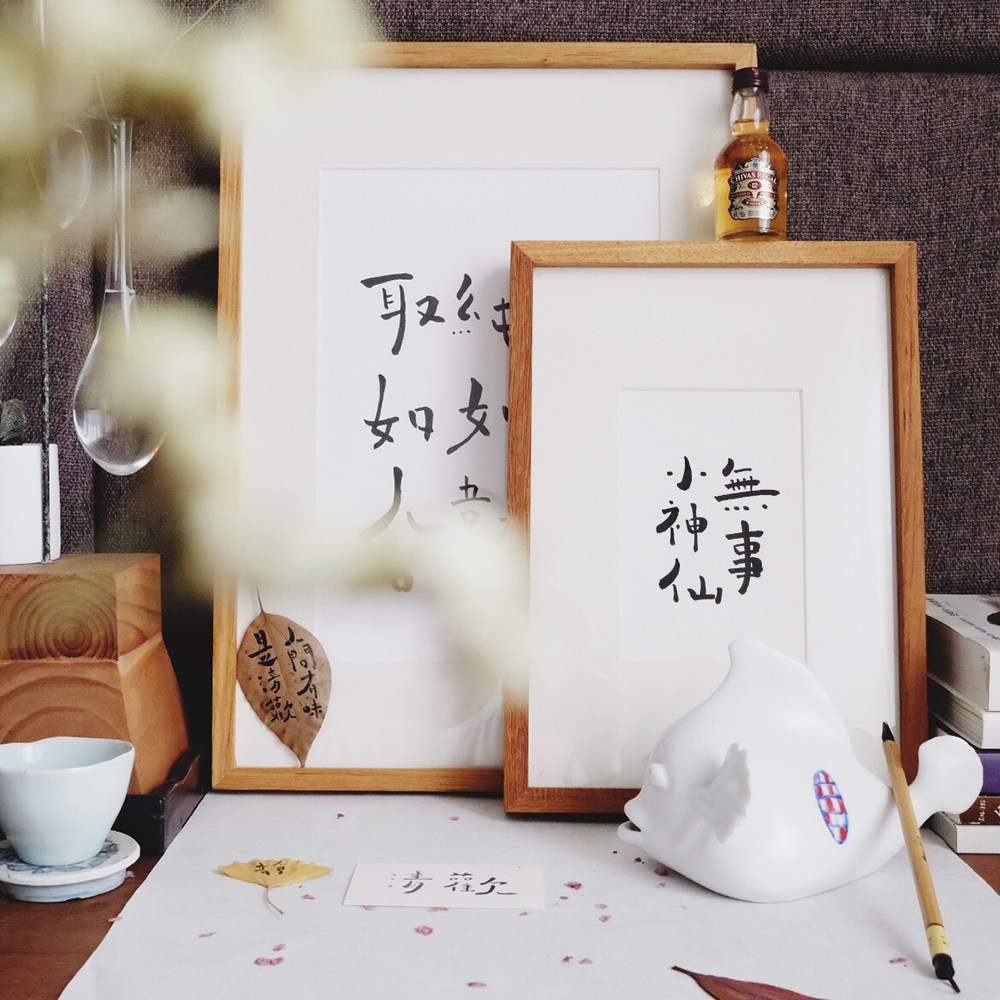 CHIVAS REGAL
12
如
取如人
無事
小神仙
人間有味
是清歡
清歡